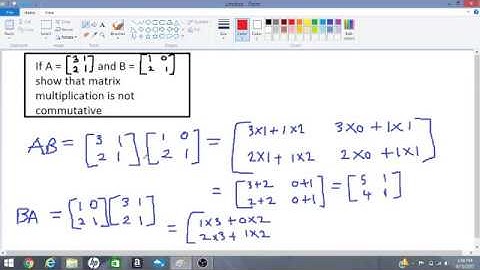 If A = [3 1
2 1] and B = [1 0
2 1]
show that matrix
multiplication is not
commutative
AB = [3 1
2 1] . [1 0
2 1] = [3×1 + 1×2 3×0 + 1×1
2×1 + 1×2 2×0 + 1×1]
= [3+2 0+1
2+2 0+1] = [5 1
4 1]
BA = [1 0
2 1] [3 1
2 1] = [1×3 + 0×2
2×3 + 1×2